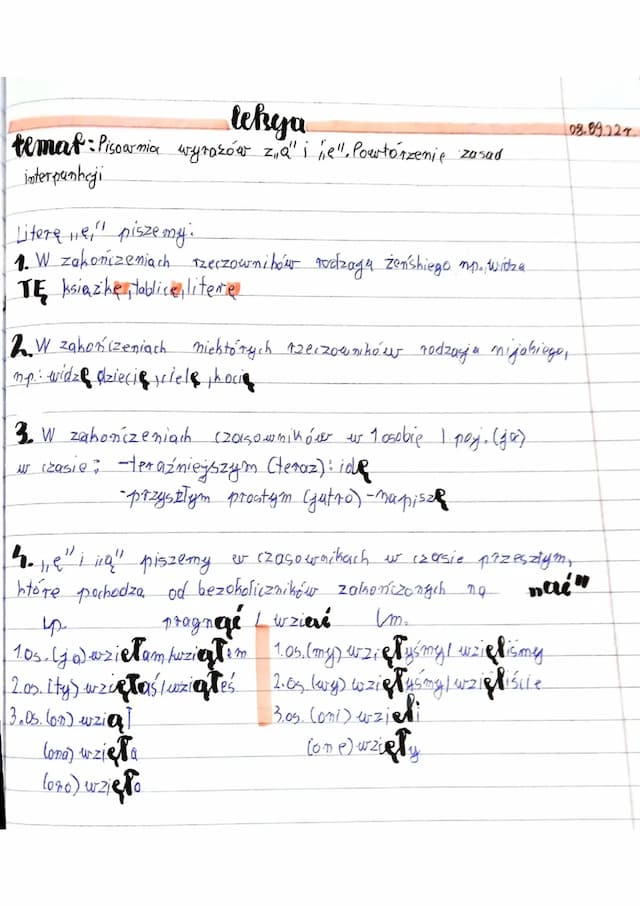 lekja
08.09.22r.
temat: Pisownia wyrazów z „ą" i „ę". Powtórzenie zasad
interpunkcji
Literę „ę," piszemy:
1. W zakończeniach rzeczowników rodzaju żeńskiego np., widzą
TĘ książkę, tablicę, literę
2. W zakończeniach niektórych rzeczowników rodzaju nijakiego,
np.: widzę dziecię, cielę, kocię
3. W zakończeniach czasowników w 1 osobie l poj. (ja)
w czasie: -teraźniejszym (teraz): idę
-przyszłym prostym (jutro) -napiszę
4. „ę" i „ą" piszemy w czasownikach w czasie przeszłym,
które pochodzą od bezokoliczników zakończonych na „ąć"
Lp. pragnąć / wziąć Lm.
1 os. (ja) wzięłam/wziąłem 1.os. (my) wzięłyśmy/ wzięliśmy
2.os. (ty) wzięłaś/wziąłeś 2.os. (wy) wzięłyśmy/ wzięliście
3.os. (on) wziął 3.os. (oni) wzięli
(ona) wzięła (one) wzięły
(ono) wzięło